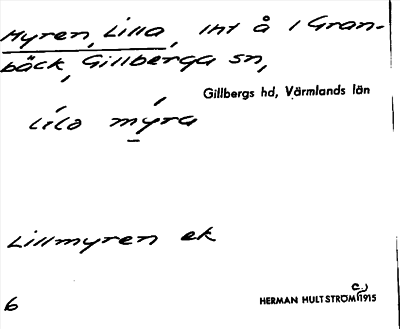 Myren, Lilla, Int å i Gran-
bäck, Gillberga sn,
Gillbergs hd, Värmlands län
lilo myra
Lillmyren ek
6
HERMAN HULTSTRÖM (1915